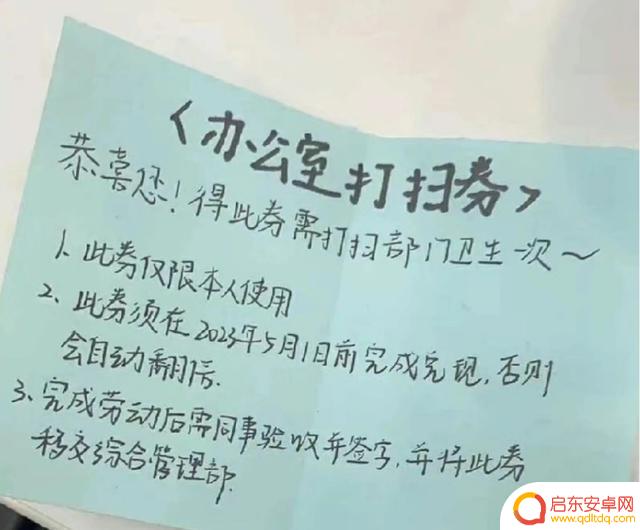 〈办公室打扫券〉
恭喜您！得此券需打扫部门卫生一次～
1、此券仅限本人使用
2、此券须在2023年5月1日前完成兑现，否则
会自动翻倍.
3、完成劳动后需同事验收并签字，并将此券
移交综合管理部.
启东安卓网
www.qdltdq.com